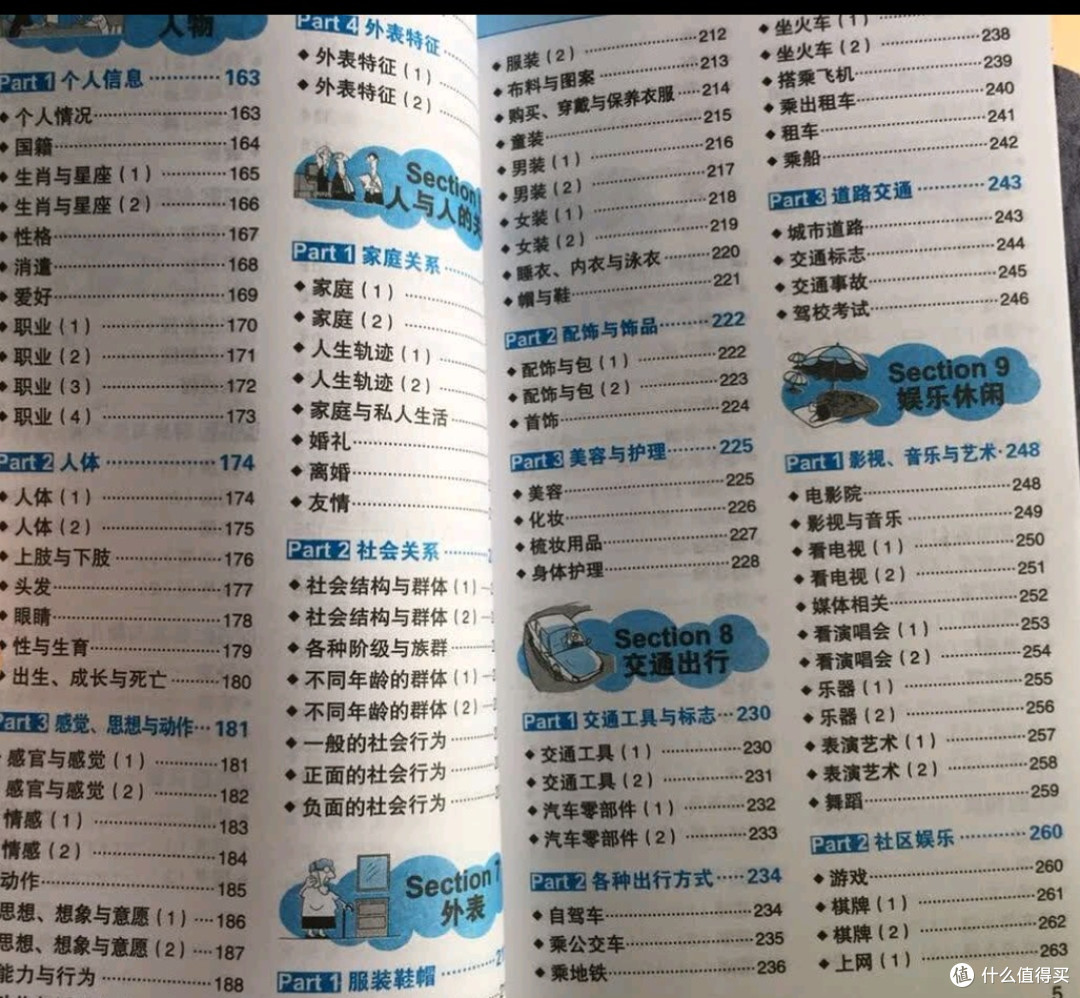 人物
Part 1 个人信息 163
个人情况 163
国籍 164
生肖与星座（1） 165
生肖与星座（2） 166
性格 167
消遣 168
爱好 169
职业（1） 170
职业（2） 171
职业（3） 172
职业（4） 173
Part 2 人体 174
人体（1） 174
人体（2） 175
上肢与下肢 176
头发 177
眼睛 178
性与生育 179
出生、成长与死亡 180
Part 3 感觉、思想与动作 181
感官与感觉（1） 181
感官与感觉（2） 182
情感（1） 183
情感（2） 184
动作 185
思想、想象与意愿（1） 186
思想、想象与意愿（2） 187
能力与行为 188
Part 4 外表特征
外表特征（1）
外表特征（2）
Section
人与人的
Part 1 家庭关系
家庭（1）
家庭（2）
人生轨迹（1）
人生轨迹（2）
家庭与私人生活
婚礼
离婚
友情
Part 2 社会关系
社会结构与群体（1）
社会结构与群体（2）
各种阶级与族群
不同年龄的群体（1）
不同年龄的群体（2）
一般的社会行为
正面的社会行为
负面的社会行为
Section 7
外表
Part 1 服装鞋帽
服装（2） 212
布料与图案 213
购买、穿戴与保养衣服 214
童装 215
男装（1） 216
男装（2） 217
女装（1） 218
女装（2） 219
睡衣、内衣与泳衣 220
帽与鞋 221
Part 2 配饰与饰品 222
配饰与包（1） 222
配饰与包（2） 223
首饰 224
Part 3 美容与护理 225
美容 225
化妆 226
梳妆用品 227
身体护理 228
Section 8
交通出行
Part 1 交通工具与标志 230
交通工具（1） 230
交通工具（2） 231
汽车零部件（1） 232
汽车零部件（2） 233
Part 2 各种出行方式 234
自驾车 234
乘公交车 235
乘地铁 236
坐火车（1）
坐火车（2） 238
搭乘飞机 239
乘出租车 240
租车 241
乘船 242
Part 3 道路交通 243
城市道路 243
交通标志 244
交通事故 245
驾校考试 246
Section 9
娱乐休闲
Part 1 影视、音乐与艺术 248
电影院 248
影视与音乐 249
看电视（1） 250
看电视（2） 251
媒体相关 252
看演唱会（1） 253
看演唱会（2） 254
乐器（1） 255
乐器（2） 256
表演艺术（1） 257
表演艺术（2） 258
舞蹈 259
Part 2 社区娱乐 260
游戏 260
棋牌（1） 261
棋牌（2） 262
上网（1） 263
5
值 什么值得买